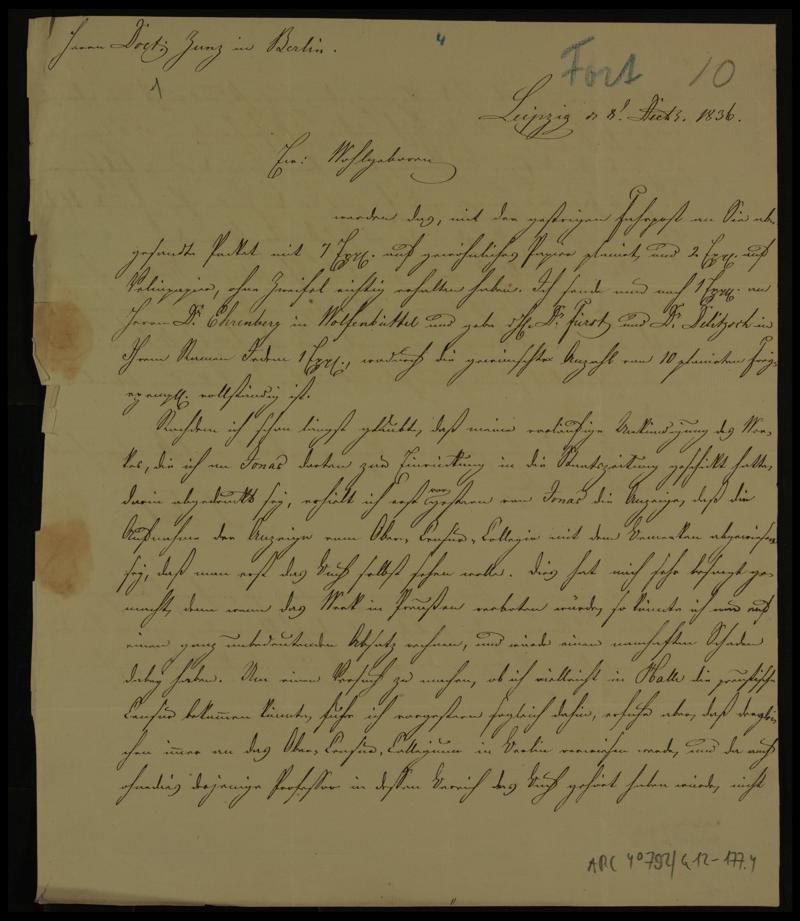 Herrn Doct: Zunz in Berlin.
4
Fort
10
1
Leipzig d 8t Decbr. 1836.
Ew: Wohlgeboren
werden das, mit der gestrigen Fahrpost an Sie ab-
gesandte Paket mit 7 Expl. auf gewöhnliches Papier planirt, und 2 Expl. auf
Velinpapier, ohne Zweifel richtig erhalten haben. Ich sende nun noch 1 Expl. an
Herrn Dr. Ehrenberg in Wolfenbüttel und gebe d. H. Dr. Fürst und Dr. Delitzsch in
Ihrem Namen Jedem 1 Expl., wodurch die gewünschte Anzahl von 10 planirten Frei-
exempll. vollständig ist.
Nachdem ich schon längst glaubte, daß meine vorläufige Ankündigung des Wer-
kes, die ich an Jonas dorten zur Einrückung in die Staatszeitung geschickt hatte,
darin abgedruckt sey, erhielt ich erst vorgestern von Jonas die Anzeige, daß die
Aufnahme der Anzeige vom Ober-Censur-Collegio mit dem Bemerken abgewiesen
sey, daß man erst das Buch selbst sehen wolle. Dies hat mich sehr besorgt ge-
macht, denn wenn das Werk in Preußen verboten würde, so könnte ich nur auf
einen ganz unbedeutenden Absatz rechnen, und würde einen namhaften Schaden
dabey haben. Um einen Versuch zu machen, ob ich vielleicht in Halle die preußische
Censur bekommen könnte, fuhr ich vorgestern sogleich dahin, erfuhr aber, daß derglei-
chen immer an das Ober-Censur-Collegium in Berlin verwiesen werde, und da auch
ohnedies derjenige Professor in dessen Bereich das Buch gehört haben würde, nicht
ARC 4° 792/G12-177.4